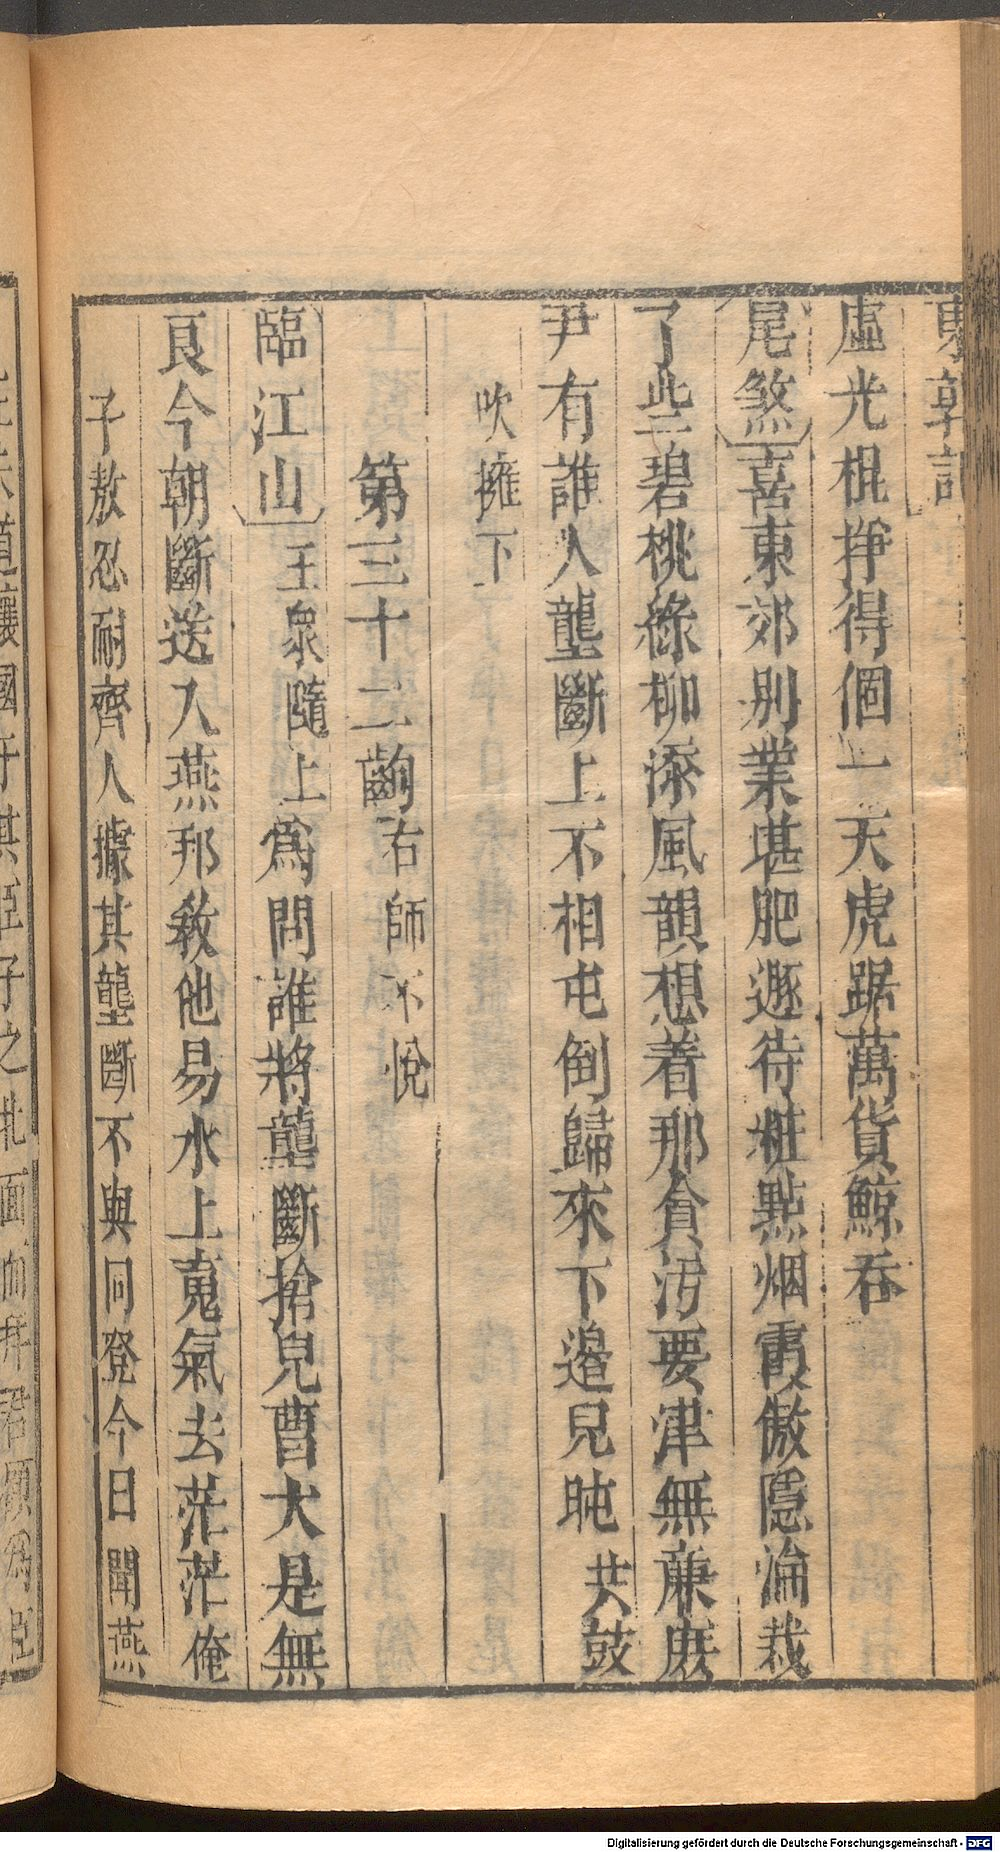 東郭記
虛光棍掙得個一天虎踞萬貨鯨吞
尾煞喜東郊別業堪肥遯待粧點烟霞傲隱淪栽
了些碧桃綠柳添風韻想着那貪汚要津無亷庶
尹有誰人壟斷上不相屯倒歸來下邉兒盹共鼓
吹擁下
第三十二齣右師不悅
臨江山王衆隨上爲問誰將壟斷搶兒曹大是無
良今朝斷送入燕邦教他易水上寃氣去茫茫俺
子敖忍耐齊人據其壟斷不與同登今日聞燕
Digitalisierung gefördert durch die Deutsche Forschungsgemeinschaft - DFG